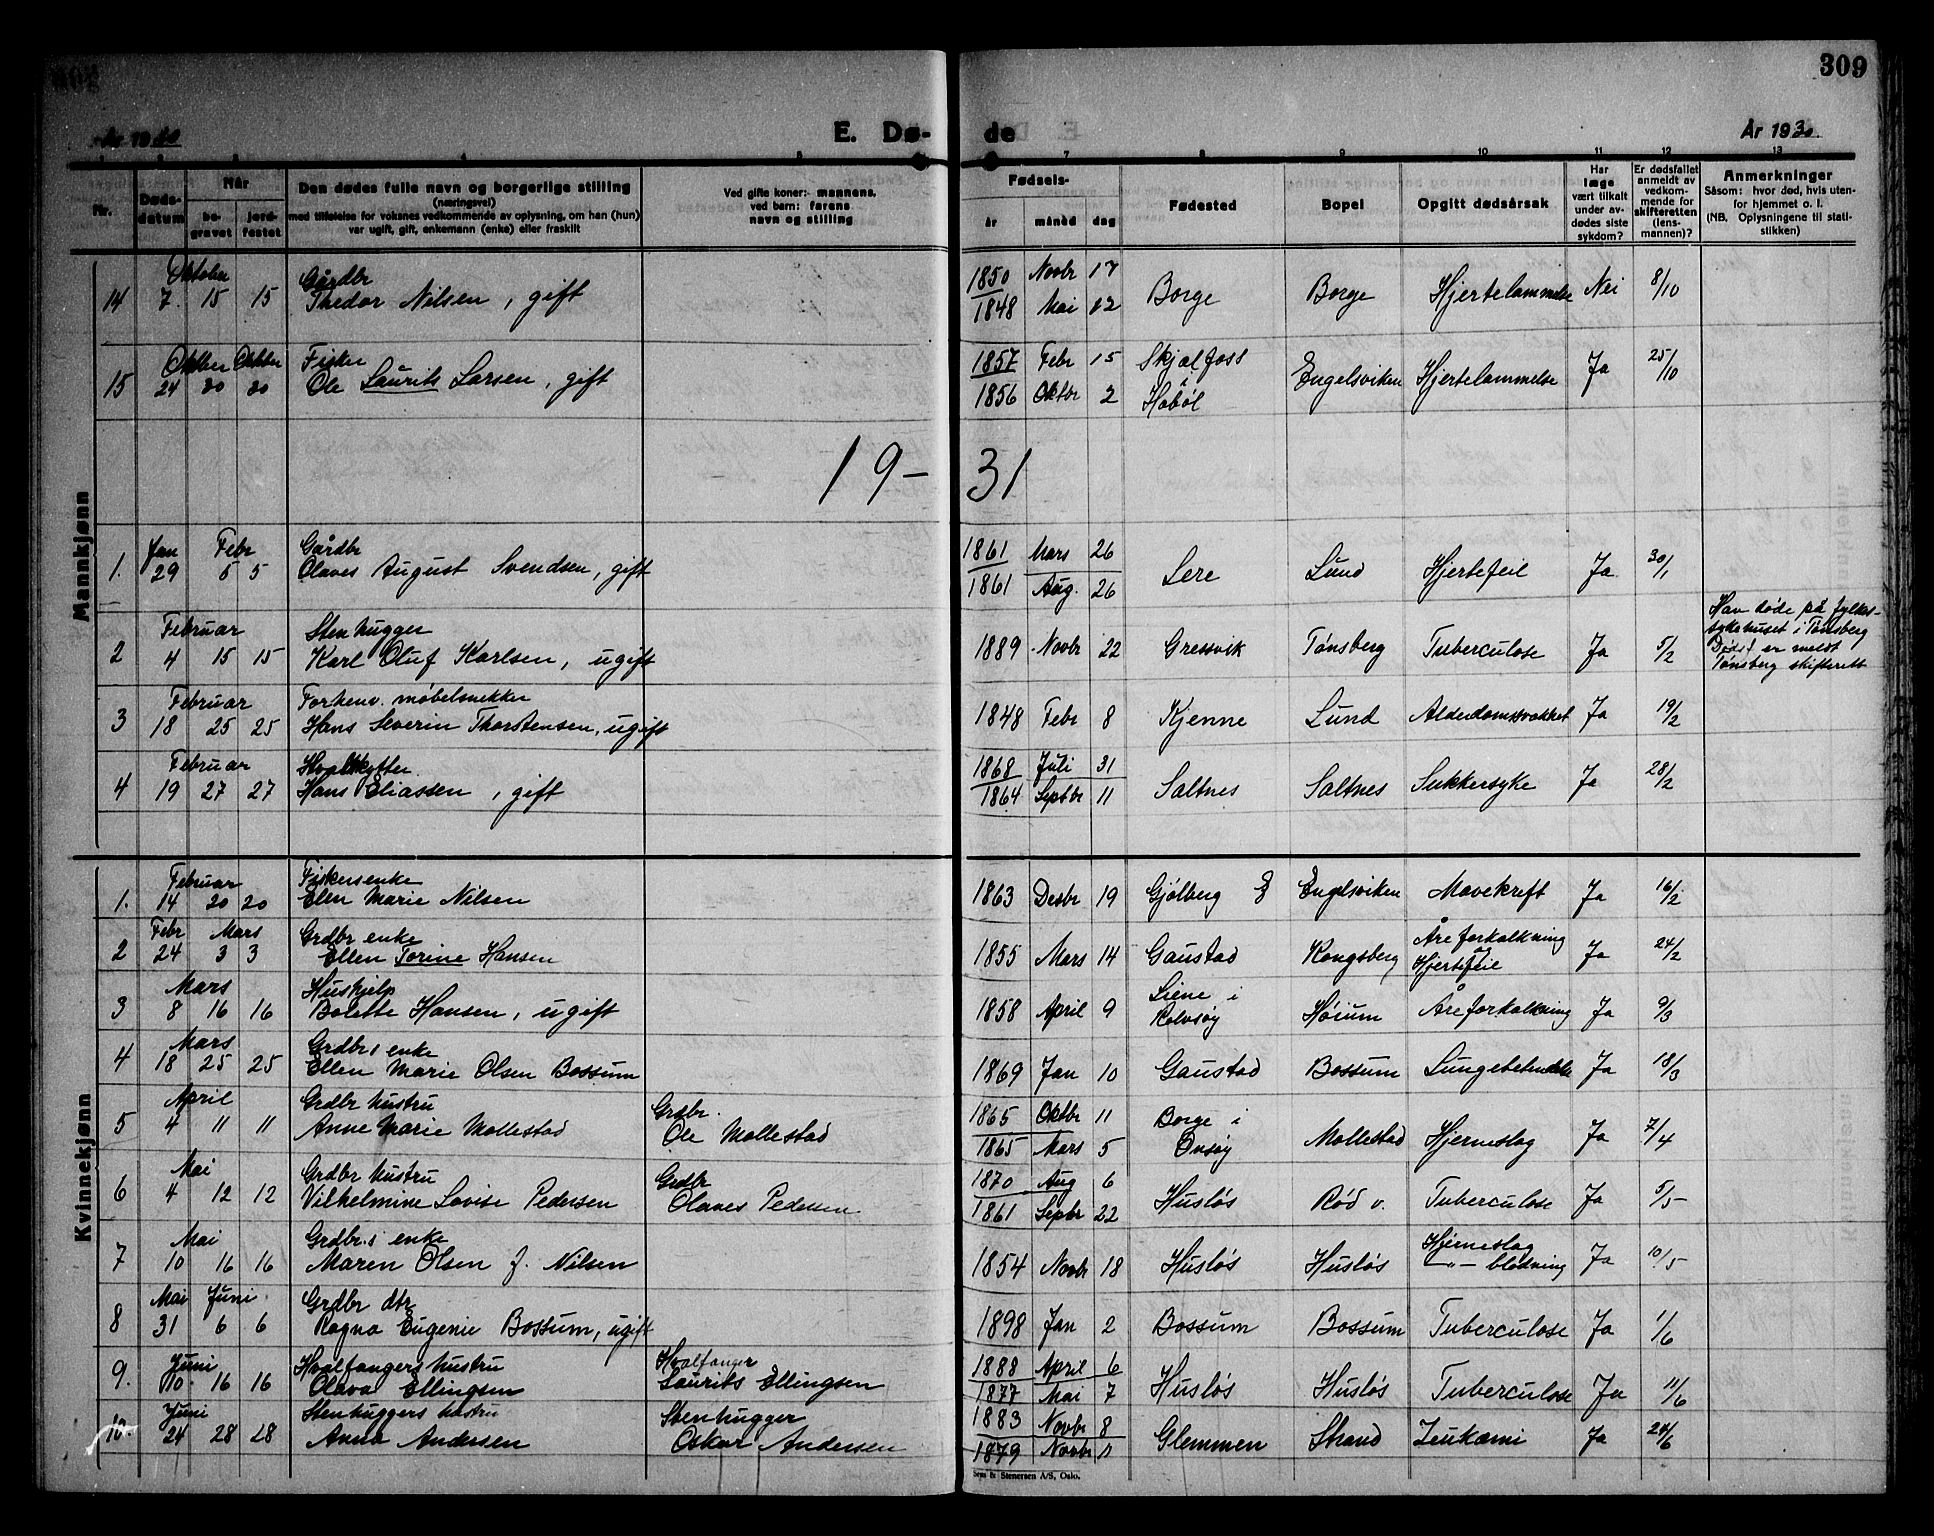 309
År 1930
E. Dø- de
År 1930
7 8 9 10 11 12 13
Nr.
Dødsdatum
Når
begravet
jordfestet
Den dødes fulle navn og borgerlige stilling
(næringsvei)
med tilføielse for voksnes vedkommende av oplysning, om han (hun)
var ugift, gift, enkemann (enke) eller fraskilt
Ved gifte koner: mannens,
ved barn: farens
navn og stilling
Fødsels-
år måned dag
Fødested
Bopel
Opgitt dødsårsak
Har
læge
vært tilkalt
under av-
dødes siste
sykdom?
Er dødsfallet
anmeldt av
vedkom-
mende for
skifteretten
(lens-
mannen)?
Anmerkninger
Såsom: hvor død, hvis uten-
for hjemmet o. l.
(NB. Oplysningene til stati-
stikken)
Mannkjønn
Oktober Gårdbr 1850 Novbr 17
14 7 15 15 Thedor Nilsen, gift 1848 Mai 12 Borge Borge Hjertelammelse Nei 8/10
Oktber Oktber Fisker 1857 Febr 15 Skjalfoss
15 24 30 30 Ole Laurits Larsen, gift 1856 Oktbr 2 i Hobøl Engelsviken Hjertelammelse Ja 25/10
19- 31
Jan Febr Gårdbr 1861 Mars 26
1. 29 5 5 Olaves August Svendsen, gift 1861 Aug. 26 Lere Lund Hjertefeil Ja 30/1
Februar Stenhugger
2 4 15 15 Karl Oluf Karlsen, ugift 1889 Novbr 22 Gressvik Tønsberg Tuberculose Ja 5/2
Han døde på fylkes-
sykehuset i Tønsberg
Dødsf er meldt
Tønsberg skifterett
Februar Forhenv. møbelsnekker
3 18 25 25 Hans Severin Thorstensen, ugift 1848 Febr 8 Kjenne Lund Alderdomssvakhet Ja 19/2
Februar Hvalskytter 1868 Juli 31
4 19 27 27 Hans Eliassen, gift 1864 Septbr 11 Saltnes Saltnes Sukkersyke Ja 28/2
Kvinnekjønn
Februar Fiskersenke
1. 14 20 20 Elen Marie Nilsen 1863 Desbr 19 Gjølberg Engelsviken Mavekreft Ja 16/2
Febr Mars Grdbr enke
2 24 3 3 Ellen Torine Hansen 1855 Mars 14 Gaustad Kongsberg Åreforkalkning og Hjertefeil Ja 24/2
Mars Hushjelp
3 8 16 16 Bolette Hansen, ugift 1858 April 9 Liene i Rolvsøy Hørum Åreforkalkning Ja 9/3
Mars Grdbr s enke
4 18 25 25 Ellen Marie Olsen Bossum 1869 Jan 10 Gaustad Bossum Lungebetendelse Ja 18/3
April Grdbr hustru Grdbr. 1865 Oktbr 11
5 4 11 11 Anne Marie Mollestad Ole Mollestad 1865 Mars 5 Borge i Onsøy Mollestad Hjerneslag Ja 7/4
Mai Grdbr hustru Grdbr 1870 Aug 6
6 4 12 12 Vilhelmine Lovise Pedersen Olaves Pedersen 1861 Septbr 22 Husløs Rød v. Tuberculose Ja 5/5
Mai Grdbr.s enke
7 10 16 16 Maren Olsen f. Nilsen 1854 Novbr 18 Husløs Husløs Hjerneslag -"- blødning Ja 10/5
Mai Juni Grdbr dtr
8 31 6 6 Ragna Eugenie Bossum, ugift 1898 Jan 2 Bossum Bossum Tuberculose Ja 1/6
Juni Hvalfangers hustru Hvalfanger 1888 April 6
9. 10. 16 16 Olava Ellingsen Laurits Ellingsen 1877 Mai 7 Husløs Husløs Tuberculose Ja 11/6
Juni Stenhuggers hustru Stenhugger 1883 Novbr 8
10. 24 28 28 Anna Andersen Oskar Andersen 1879 Novbr 1 Glemmen Strand Leukæmi Ja 24/6
Sem & Stenersen A/S, Oslo.